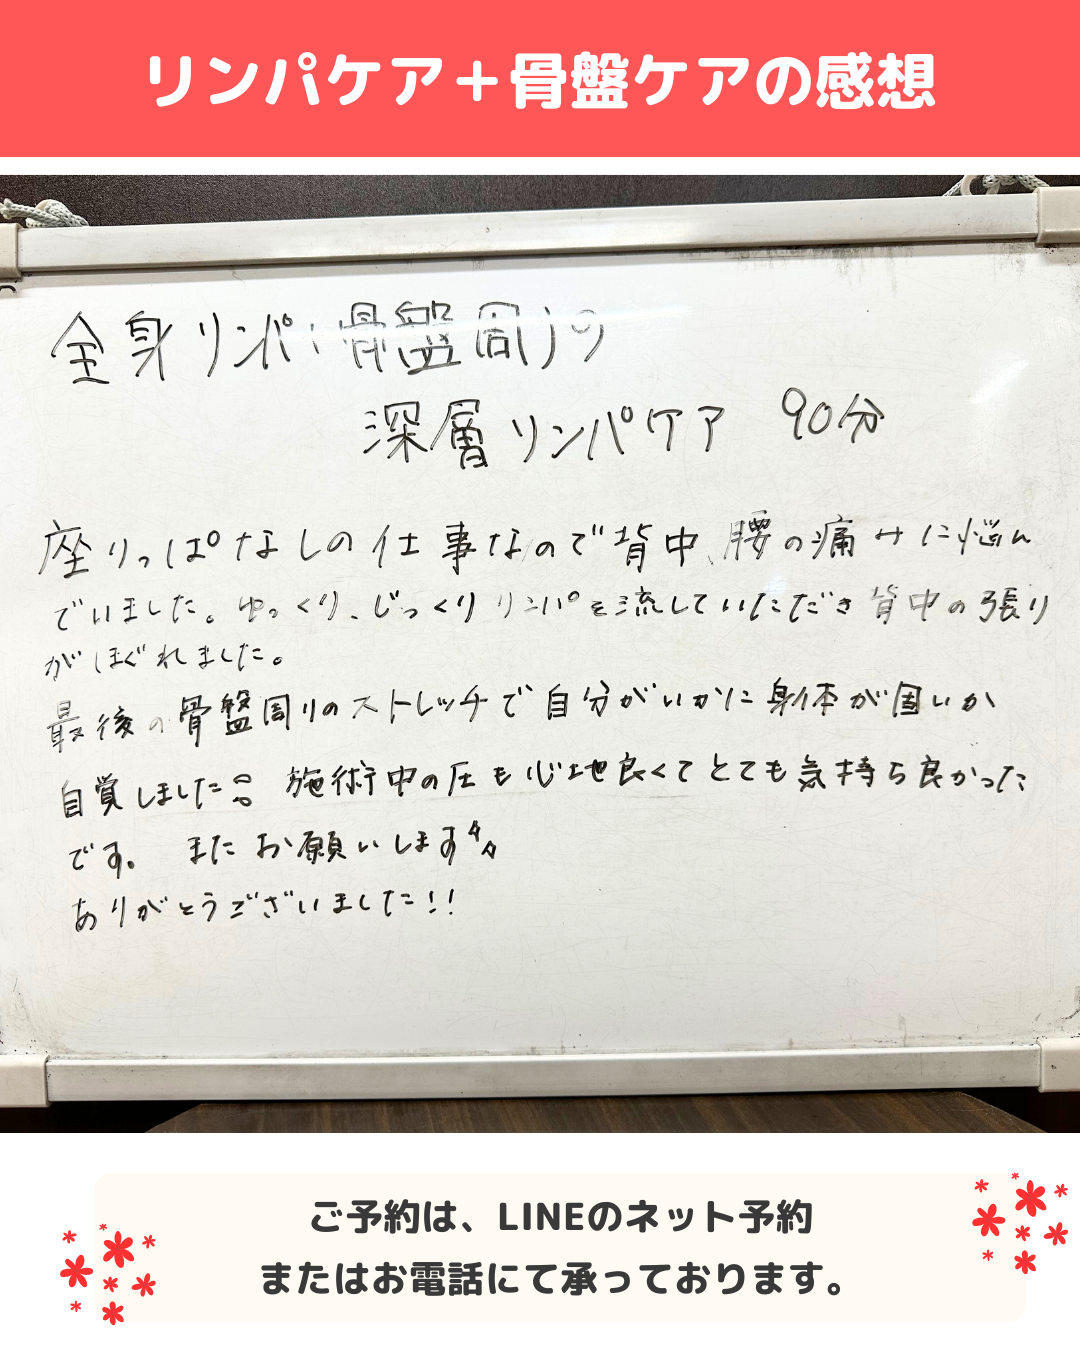 リンパケア＋骨盤ケアの感想
全身リンパ+骨盤周りの
深層リンパケア 90分
座りっぱなしの仕事なので背中、腰の痛みに悩ん
でいました。ゆっくり、じっくりリンパを流していただき背中の張り
がほぐれました。
最後の骨盤周りのストレッチで自分がいかに身体が固いか
自覚しました。施術中の圧も心地良くてとても気持ち良かった
です。またお願いします
ありがとうございました!!
ご予約は、LINEのネット予約
またはお電話にて承っております。